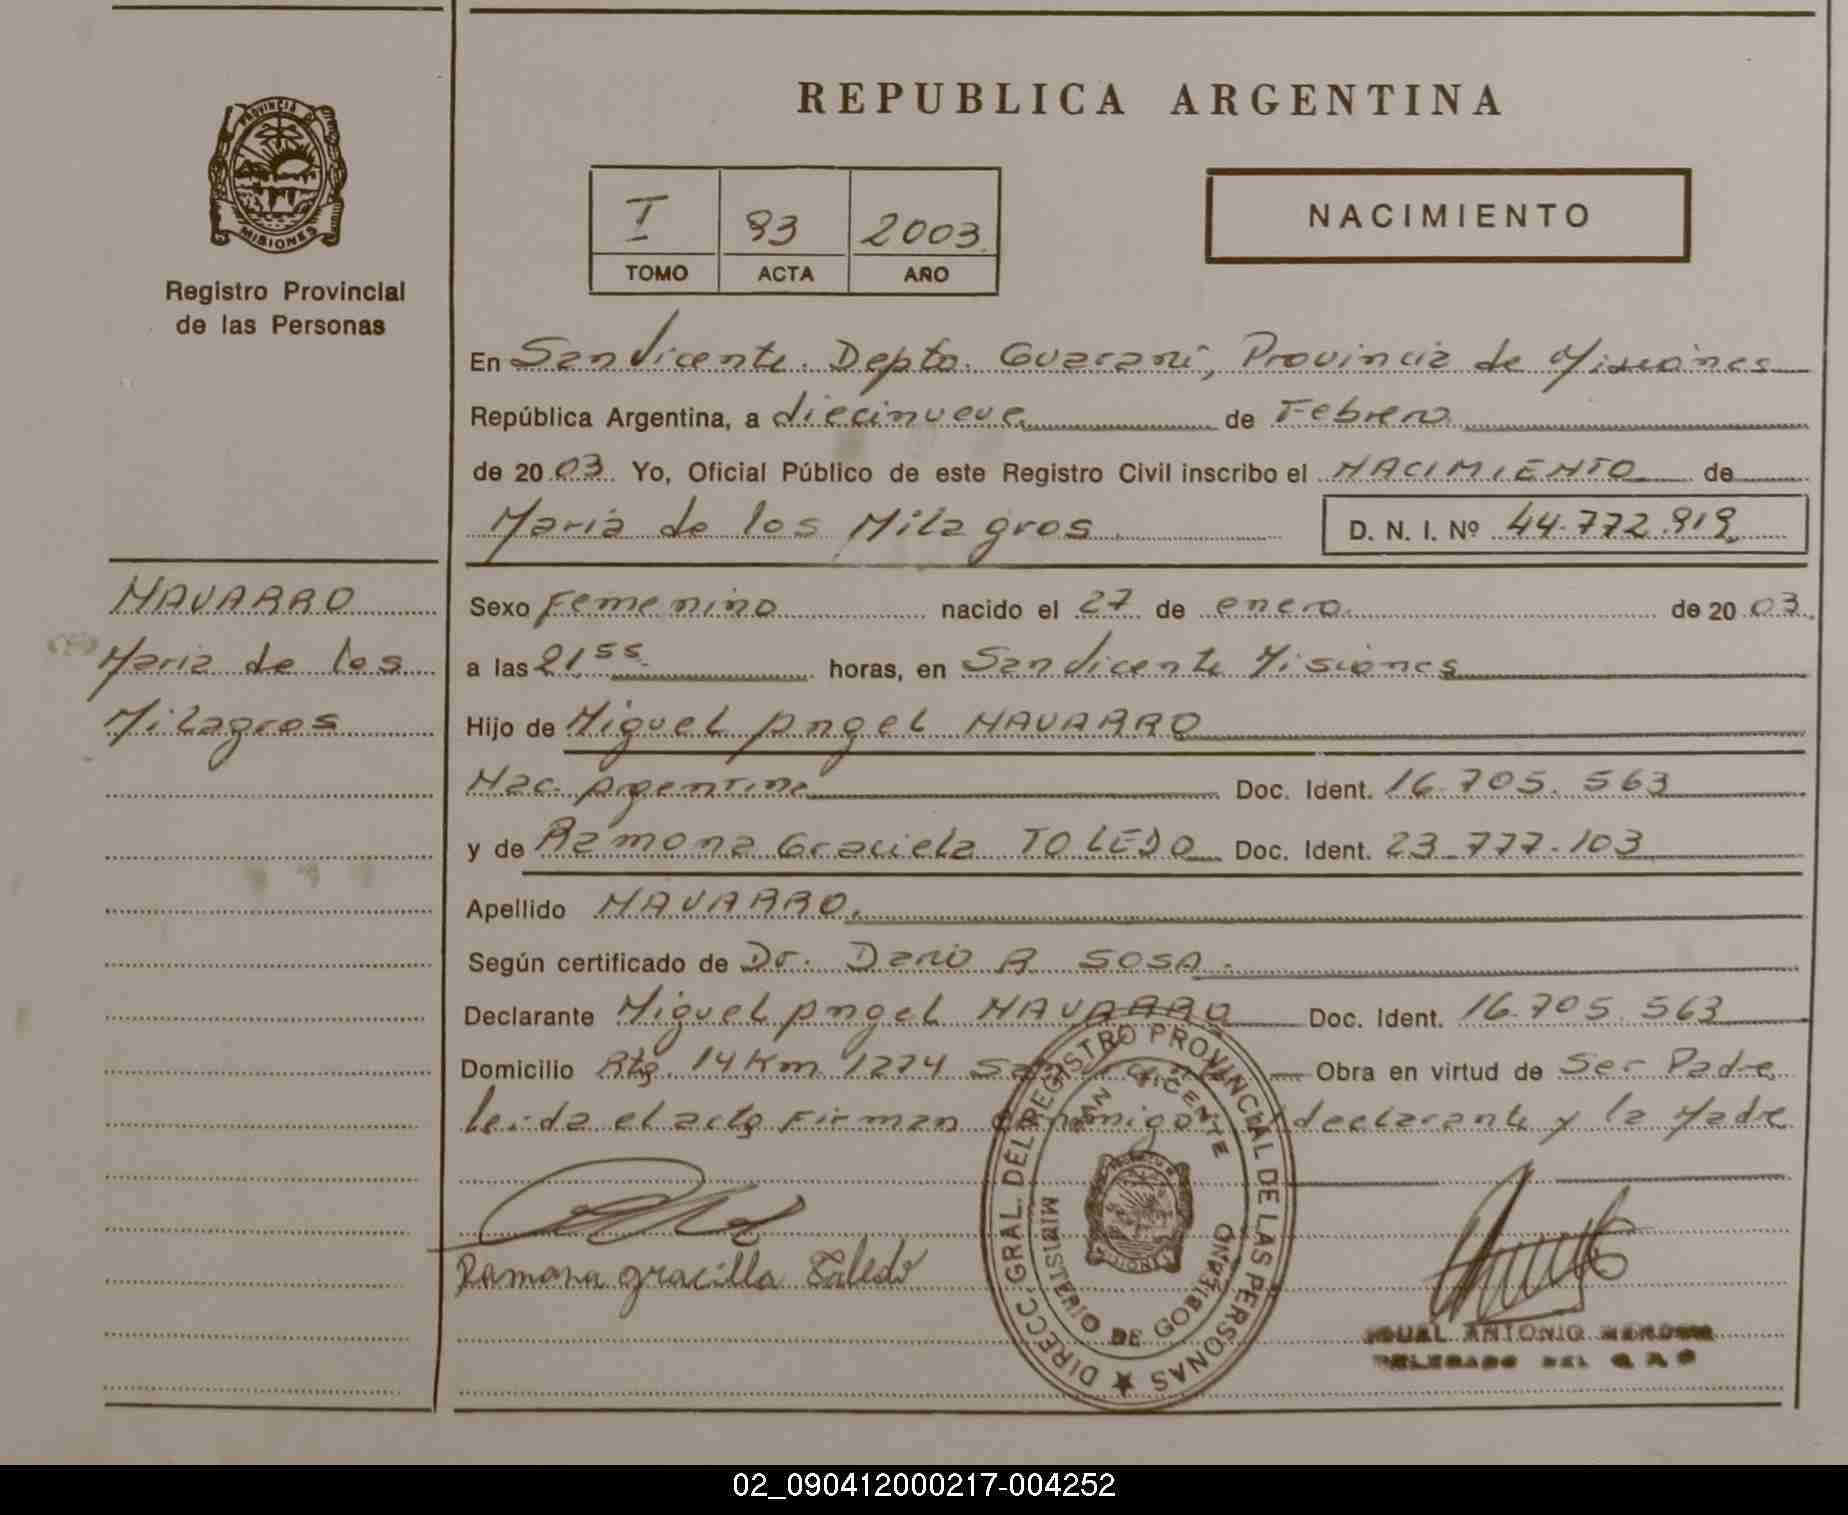 REPUBLICA ARGENTINA
PROVINCIA DE
MISIONES
Registro Provincial
de las Personas
I 93 2003
TOMO ACTA AÑO
NACIMIENTO
En San Vicente. Depto. Guaraní, Provincia de Misiones
República Argentina, a diecinueve de Febrero
de 2003. Yo, Oficial Público de este Registro Civil inscribo el NACIMIENTO de
Maria de los Milagros D. N. I. Nº 44.772.919
NAVARRO
Maria de los
Milagros
Sexo Femenino nacido el 27 de enero de 2003
a las 21,55 horas, en San Vicente Misiones
Hijo de Miguel Angel NAVARRO
Nac. Argentina Doc. Ident. 16.705.563
y de Ramona Graciela TOLEDO Doc. Ident. 23.777.103
Apellido NAVARRO.
Según certificado de Dr. Dario R SOSA.
Declarante Miguel Angel NAVARRO Doc. Ident. 16.705.563
Domicilio Rta. 14 Km 1274 San Vicente Obra en virtud de Ser Padre
leida el acta Firman conmigo el declarante y la Madre
Ramona gracilla Toledo
DIRECC. GRAL. DEL REGISTRO PROVINCIAL DE LAS PERSONAS
SAN VICENTE
MINISTERIO DE GOBIERNO
ANTONIO
DELEGADO DEL
02_090412000217-004252